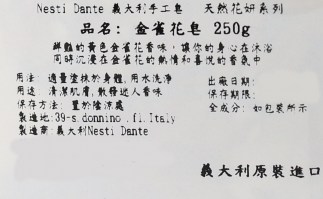 Nesti Dante 義大利手工皂 天然花妍系列
品名: 金雀花皂 250g
鮮豔的黃色金雀花香味,讓你的身心在沐浴
同時沉浸在金雀花的熱情和喜悅的香氛中
用法: 適量塗抹於身體,用水洗淨 出廠日期:
用途: 清潔肌膚,散發迷人香味 保存期限:
保存方法: 置於陰涼處 全成分: 如包裝所示
製造地:39-s.donnino .fl.Italy
製造商:義大利Nesti Dante
義大利原裝進口